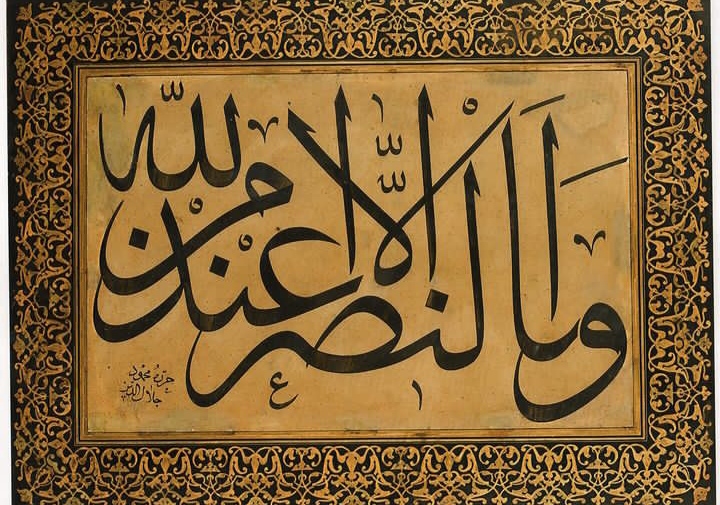 وَمَا النصر الّا من عند الله
حرره محمود
جلال الدين